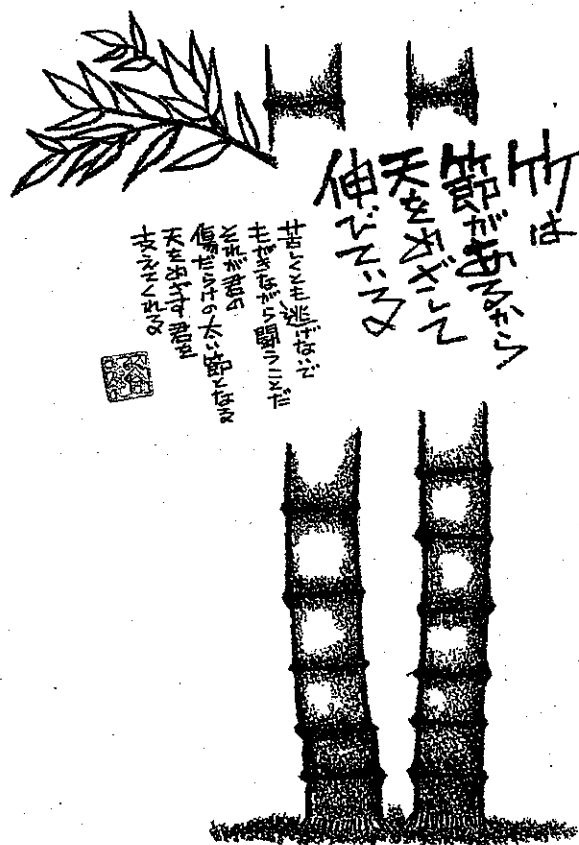 竹は
節があるから
天をめざして
伸びている
苦しくとも逃げないで
もがきながら闘うことだ
それが君の
傷だらけの太い節となる
天をめざす君を
支えてくれる